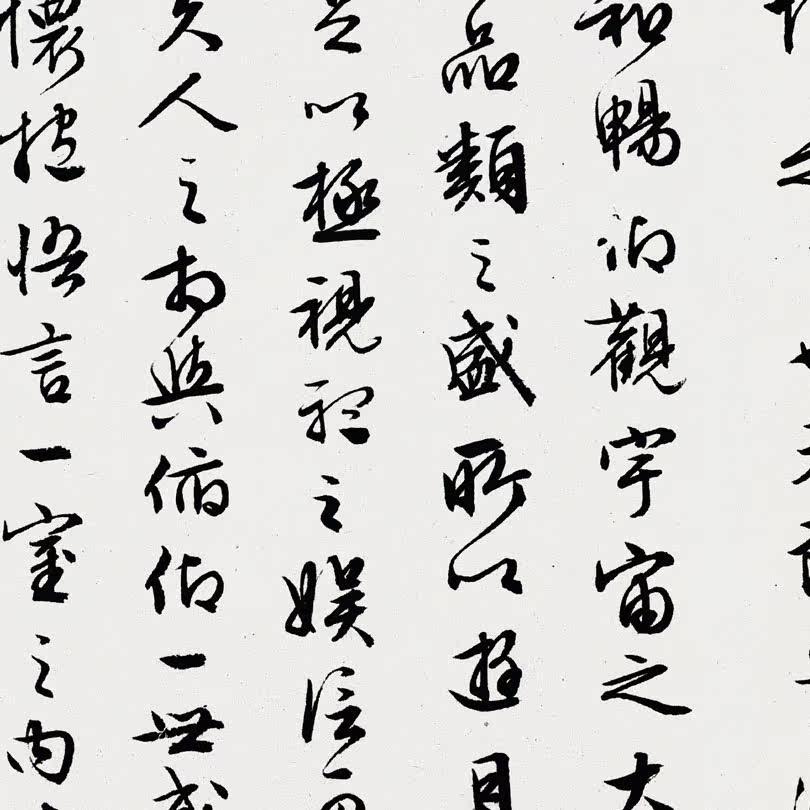 和暢仰觀宇宙之大
品類之盛所以遊目
足以極視聽之娛信可
夫人之相與俯仰一世或
懷抱悟言一室之內